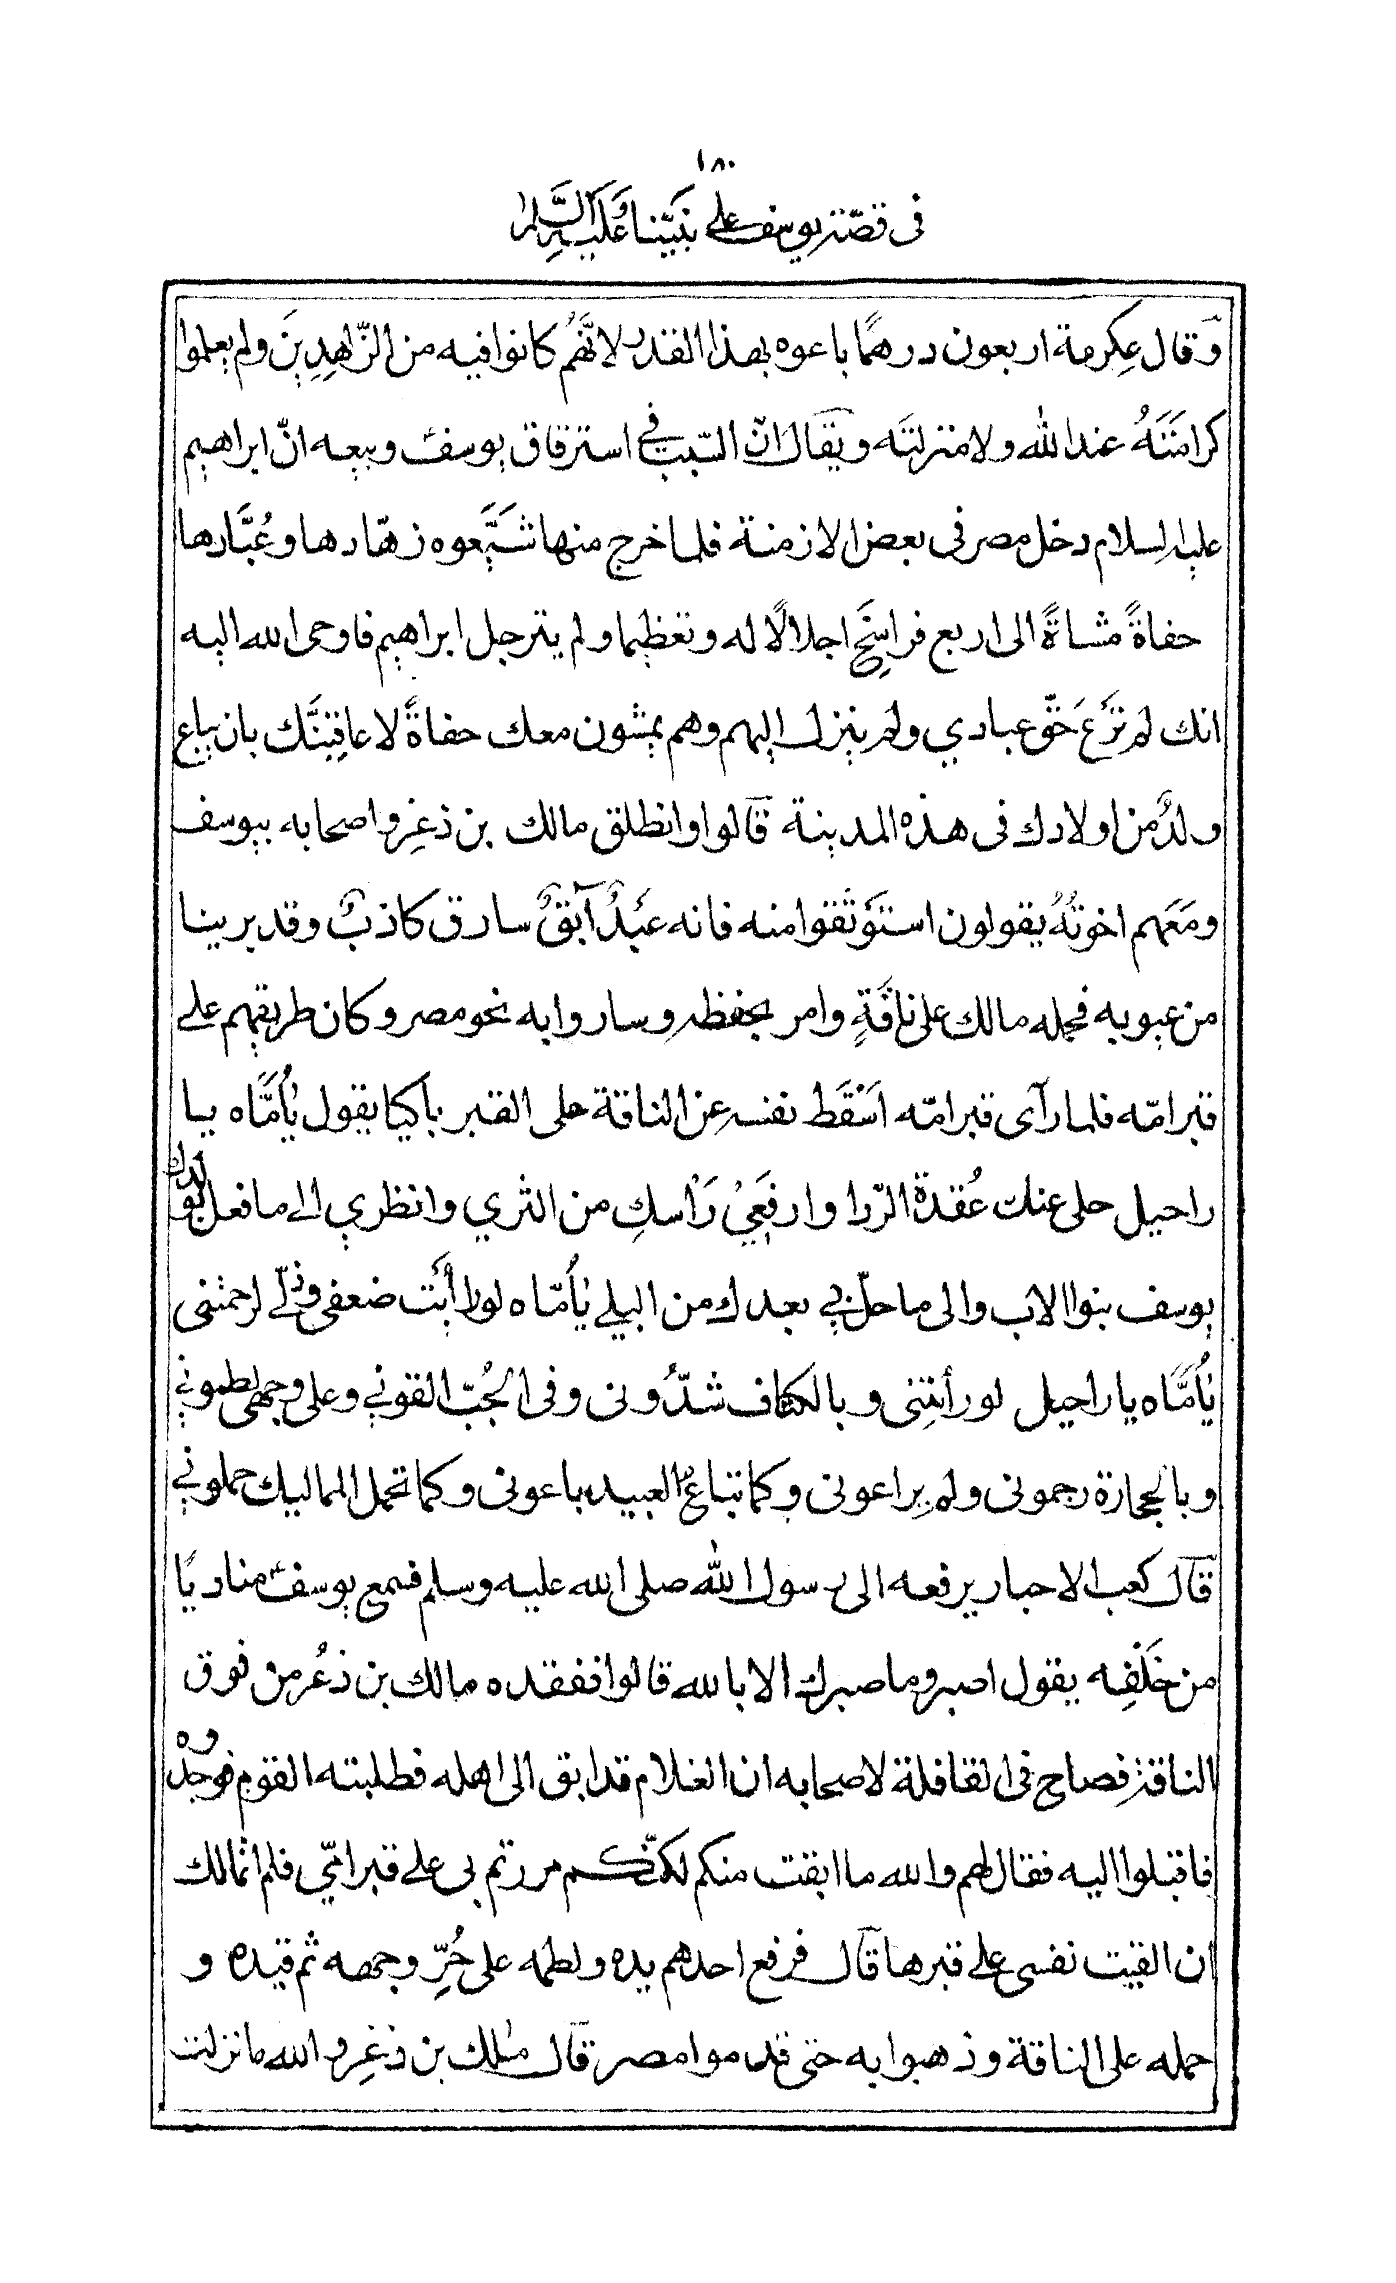 ١٨٠
فى قصّة يوسف على نبيّنا وعليه السّلام
وَقال عِكرمة اربعون درهمًا باعوه بهذا القدر لانَّهُم كانوا فيه من الزّاهِدِينَ ولم يعلموا
كرامَتَهُ عند الله ولا منزلتَه ويقال انّ السّبب في استرقاق يوسف وبيعه انّ ابراهيم
عليه السلام دخل مصر فى بعض الازمنة فلما خرج منها شَيَّعوه زهّادها وعُبَّادها
حفاةً مشاةً الى اربع فراسِخَ اجلالًا له وتعظيما ولم يترجل ابراهيم فاوحى الله اليه
انك لم تَرْعَ حَقّ عبادي ولم ينزل اليهم وهم يمشون معك حفاةً لاعاقِبَنَّك بان يباع
ولدٌ من اولادك فى هذه المدينة قالوا وانطلق مالك بن ذعِر واصحابه بيوسف
ومَعَهم اخوتُهُ يقولون استَوثقوا منه فانه عَبْدٌ آبقٌ سارق كاذبٌ وقد برينا
من عيوبه فحمله مالك على ناقَةٍ وامر بحفظه وساروا به نحو مصر وكان طريقهم على
قبر امّه فلما رآى قبر امّه اَسْقَط نفسه عن الناقة على القبر باكيًا يقول يٰأمَّاه يا
راحيل حلى عنك عُقدة الرّدا وارفَعِيْ رَاْسكِ من الثري وانظري الى ما فعل بولدك
يوسف بنوا الاب والى ما حلّ بي بعدك من البلي يٰأمّاه لو راأيت ضعفى وذلّي لرحمتنى
يٰأمَّاه يا راحيل لو رأيتِنى وبالكتاف شدُّونى وفى الجُبّ القوني وعلى وجهى لطموني
وبالحجارة رجمونى ولم يراعونى وكما تباعُ العبيد باعونى وكما تحمل المماليك حملوني
قال كعب الاحبار يرفعه الى رسول الله صلى الله عليه وسلم فسمع يوسف مناديًا
من خَلْفِه يقول اصبر وما صبرك الا بالله قالوا ففقده مالك بن ذعُر من فوق
الناقة فصاح فى القافلة لاصحابه ان الغلام قد ابق الى اهله فطلبته القوم فوجدوه
فاقبلوا اليه فقال لهم والله ما ابقت منكم لكنّكم مررتم بى على قبر امّي فلم اتمالك
ان القيت نفسى على قبرها قال فرفع احدهم يده ولطمه على حُرِّ وجهه ثم قيده و
حمله على الناقة وذهبوا به حتى قدموا مصر قال مٰلك بن ذعِر والله ما نزلت